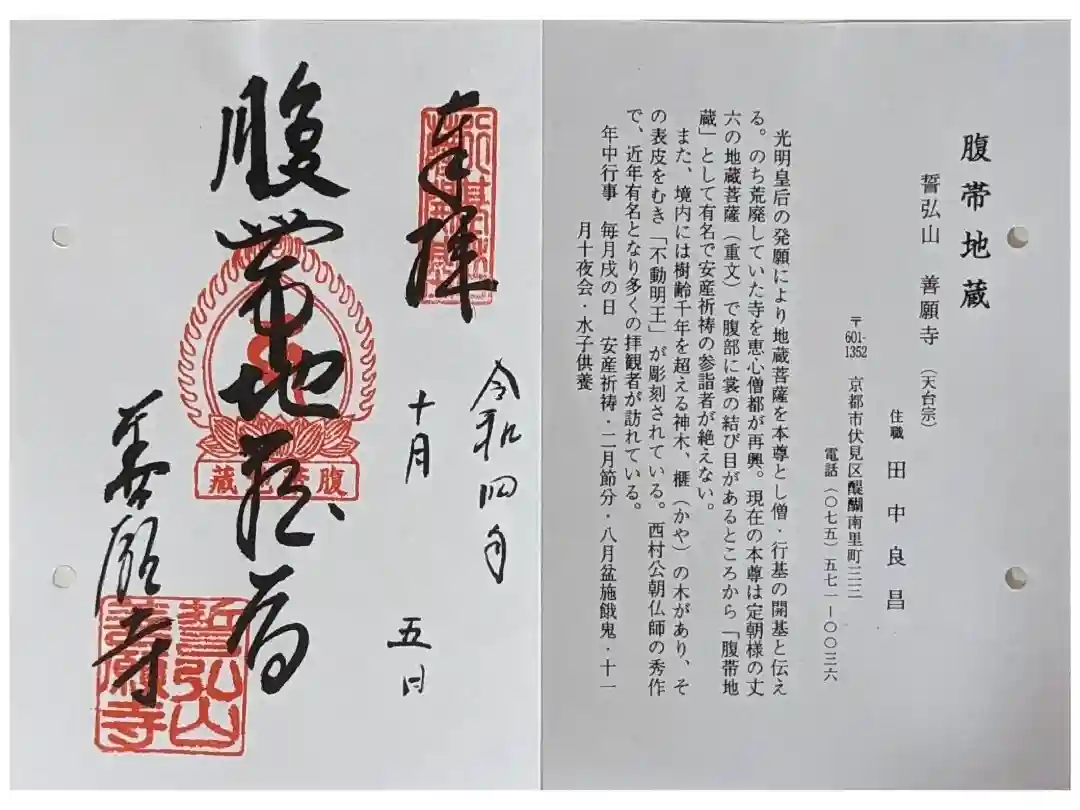 腹帯地蔵
誓弘山 善願寺 (天台宗)
住職 田中良昌
〒601-1352 京都市伏見区醍醐南里町三三
電話(〇七五)五七一―〇〇三六
光明皇后の発願により地蔵菩薩を本尊とし僧・行基の開基と伝え
る。のち荒廃していた寺を恵心僧都が再興。現在の本尊は定朝様の丈
六の地蔵菩薩(重文)で腹部に裳の結び目があるところから「腹帯地
蔵」として有名で安産祈祷の参詣者が絶えない。
また、境内には樹齢千年を超える神木、榧(かや)の木があり、そ
の表皮をむき「不動明王」が彫刻されている。西村公朝仏師の秀作
で、近年有名となり多くの拝観者が訪れている。
年中行事 毎月戌の日 安産祈祷・二月節分・八月盆施餓鬼・十一
月十夜会・水子供養
奉拝
令和四年
十月 五日
腹帯地蔵尊
腹帯地蔵
善願寺
誓弘山
善願寺